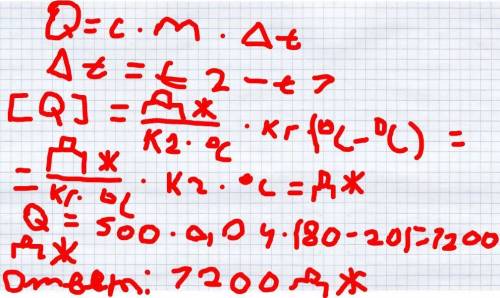 Q = c · m · Δt
Δt = t2 - t1
[Q] = Дж/кг·°C · кг(°C-°C) =
= Дж/кг·°C · кг · °C = Дж
Q = 500 · 0,04 · (80 - 20) = 1200
Дж
Ответ: 1200 Дж